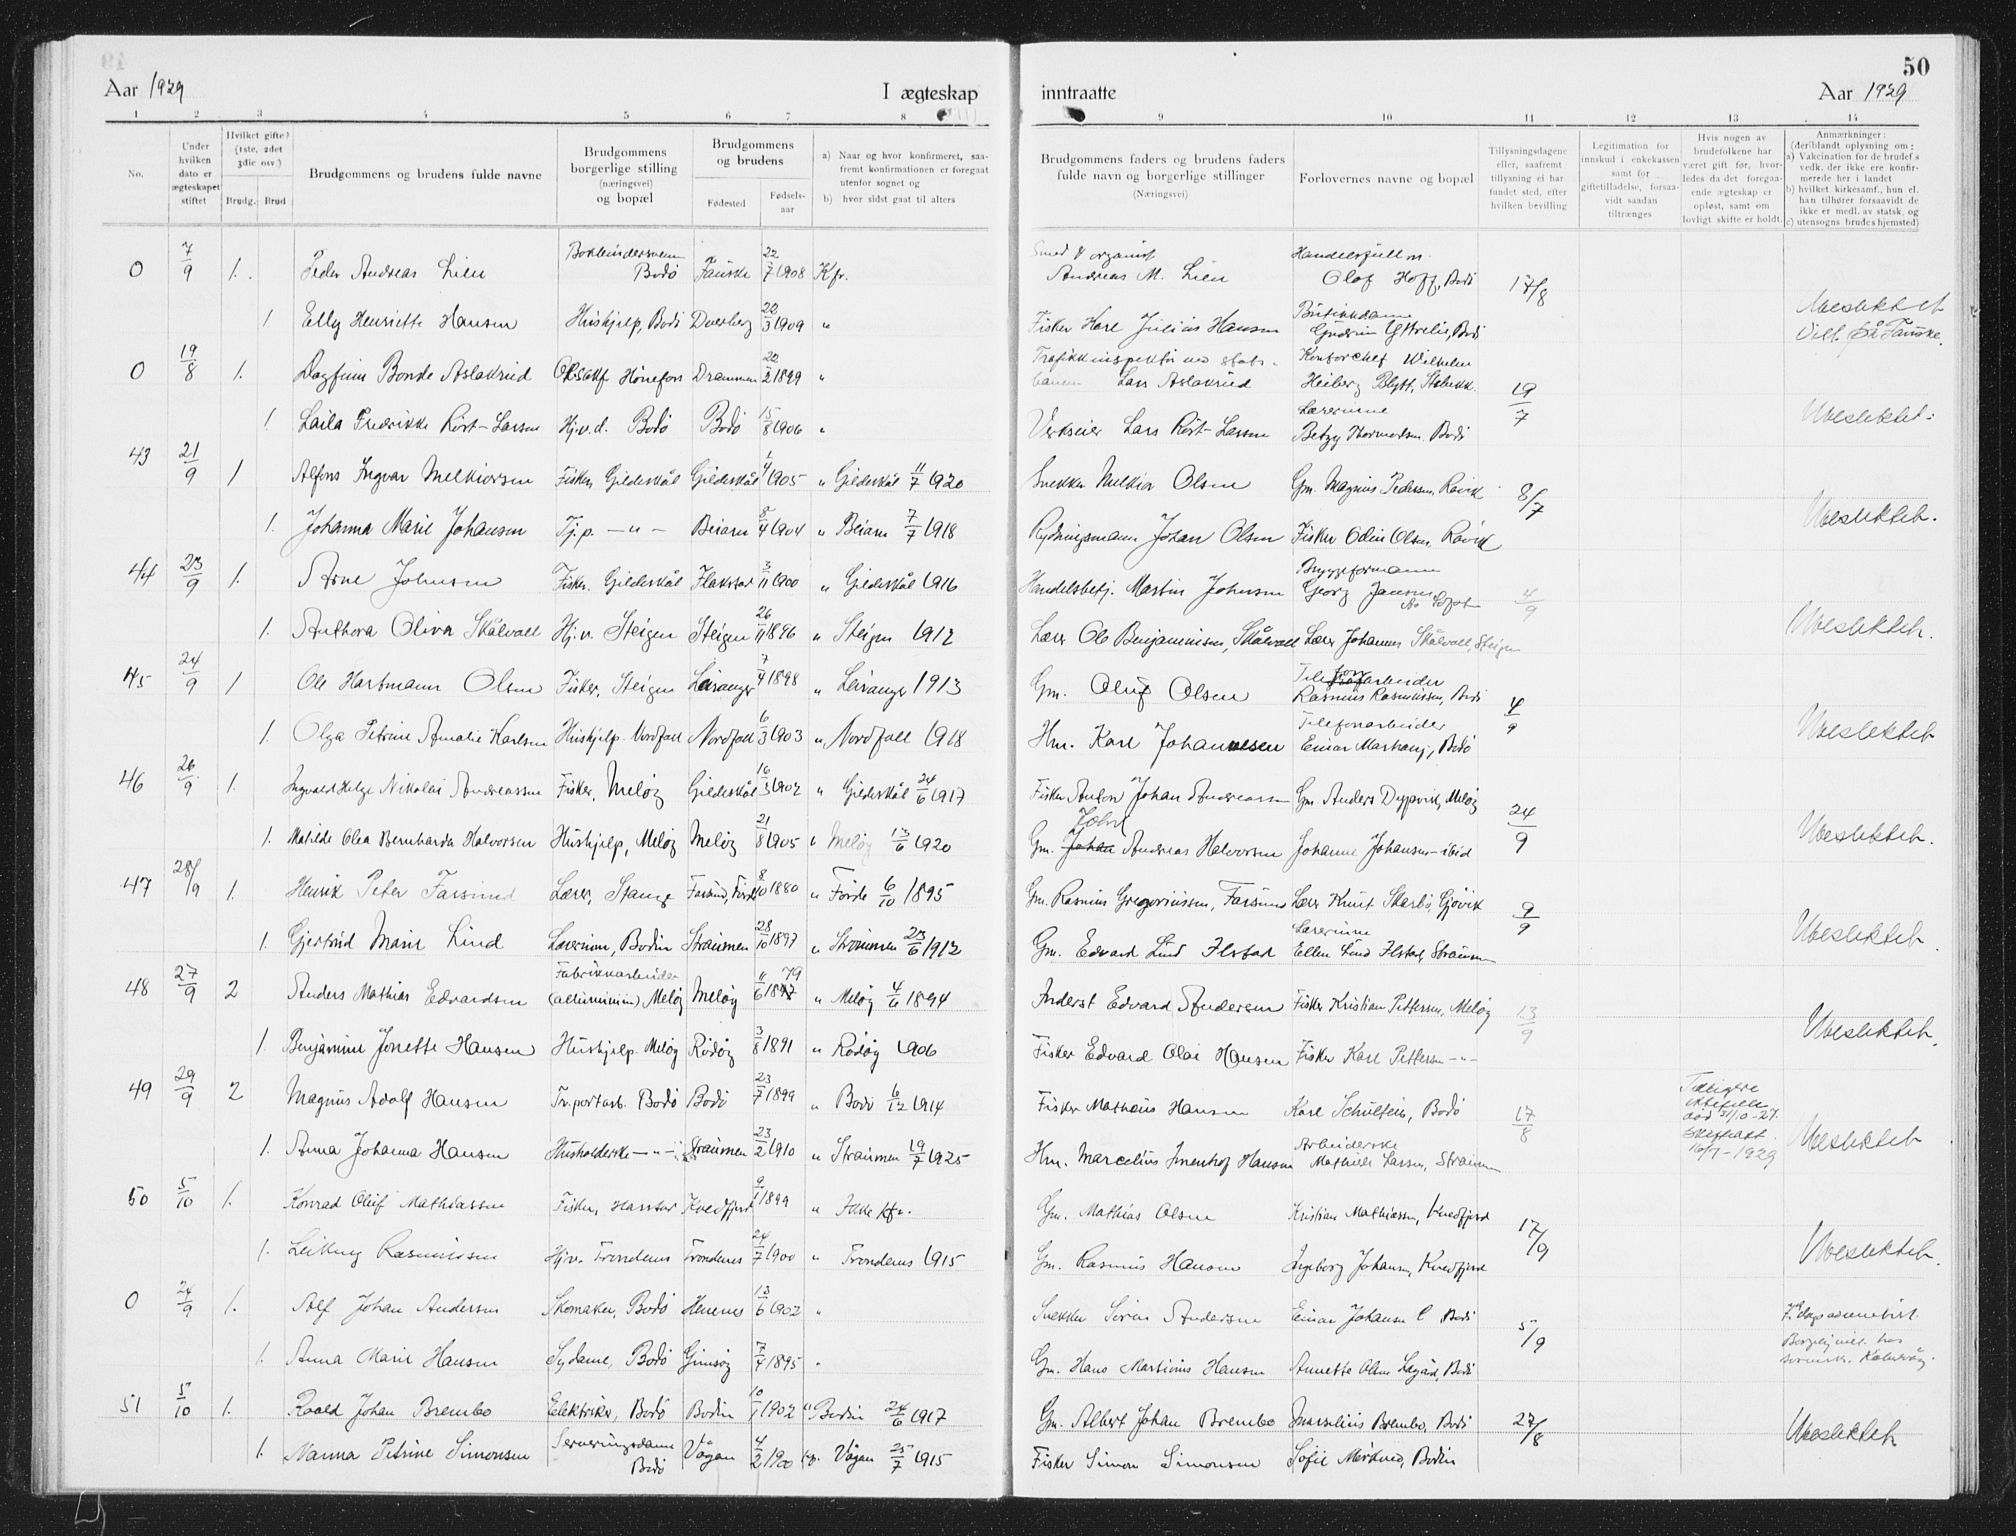 50
Aar 1929 I ægteskap inntraatte Aar 1929
1 2 3 4 5 6 7 8 9 10 11 12 13 14
No.
Under hvilken dato er ægteskapet stiftet
Hvilket gifte? (1ste, 2det 3die osv.)
Brudg. Brud
Brudgommens og brudens fulde navne
Brudgommens borgerlige stilling (næringsvei) og bopæl
Brudgommens og brudens
Fødested Fødsels-aar
a) Naar og hvor konfirmeret, saafremt konfirmationen er foregaat utenfor sognet og
b) hvor sidst gaat til alters
Brudgommens faders og brudens faders fulde navn og borgerlige stillinger (Næringsvei)
Forlovernes navne og bopæl
Tillysningsdagene eller, saafremt tillysning ei har fundet sted, efter hvilken bevilling
Legitimation for innskud i enkekassen samt for giftetilladelse, forsaavidt saadan tiltrænges
Hvis nogen av brudefolkene har været gift før, hvorledes da det foregaaende ægteskap er opløst, samt om lovligt skifte er holdt.
Anmærkninger: (deriblandt oplysning om:
a) Vakcination for de brudef.s vedk. der ikke ere konfirmerede her i landet
b) hvilket kirkesamf., hun el. han tilhører forsaavidt de ikke er medl. av statsk. og
c) utensogns brudes hjemsted)
0 7/9 1. Peder Andreas Lien Bodø Fauske 22/7 1908 Kfr. Smed & organist Andreas M. Lien Olof Hoff, Bodø 17/8
1 Elly Henriette Hansen Hushjelp, Bodø Dverberg 22/3 1909 " Fisker Karl Julius Hansen Ubeslektet
0 19/8 1. Dagfinn Bonde Aslakrud Hönefoss Drammen 20/2 1899 " Lars Aslakrud Kontorchef Wilhelm Heiberg Blytt, Stabekk. 19/7
1 Laila Fredrikke Röst-Larsen Hj.v.d. Bodø Bodø 15/8 1906 " Verkseier Lars Röst-Larsen Lærerinne Bodø Ubeslektet.
43 21/9 1 Alfons Ingvar Melkiorsen Fisker, Gildeskål Gildeskål 1/4 1905 " Gildeskål 11/7 1920 Snekker Melkior Olsen Gm. Magnus Pedersen, Råvik 8/7
1. Johanna Marie Johansen Tj.p. — " — Beiarn 8/4 1904 " Beiarn 7/7 1918 Rydningsmann Johan Olsen Fisker Odin Olsen, Råvik Ubeslektet.
44 23/9 1. Arne Johnsen Fisker. Gildeskål Flakstad 3/11 1900 " Gildeskål 1916 Handelsbetj. Martin Johnsen Bryggeformann Georg Jansen 4/9
1. Anthora Oliva Skålvoll Hj.v. Steigen Steigen 26/11 1896 " Steigen 1912 Lærer Ole Benjaminsen, Skålvoll Lærer Johannes Skålvoll, Steigen Ubeslektet.
45 24/9 1 Ole Hartmann Olsen Fisker, Steigen Leiranger 7/4 1898 " Leiranger 1913 Gm. Oluf Olsen Rasmus Rasmussen, Bodø 4/9
1. Olga Petrine Amalie Karlsen Hushjelp Nordfold Nordfold 6/3 1903 " Nordfold 1918 Hm. Karl Johannesen Telefonarbeider Einar Marhaug, Bodø Ubeslektet
46 26/9 1. Ingvald Helge Nikolai Andreassen Fisker, Meløy Gildeskål 16/3 1902 " Gildeskål 24/6 1917 Fisker Anton Johan Andreassen Gm. Anders Dypvik, Meløy 24/9
1. Matilde Olea Bernharda Halvorsen Hushjelp, Meløy Meløy 21/8 1905 " Meløy 13/6 1920 Gm. Johan Andreas Halvorsen Johanne Johansen - ibid Ubeslektet
47 28/9 1. Henrik Peter Farsund Lærer, Stange Farsund, Førde 8/10 1880 " Førde 6/10 1895 Gm. Rasmus Gregoriussen, Farsund Lærer Knut Skarbö, Gjøvik 9/9
1. Gjertrud Marie Lind Lærerinne, Bodin Straumen 28/10 1897 " Straumen 23/6 1912 Gm. Edvard Lind Ilstad Lærerinne Ellen Lind Ilstad, Straumen Ubeslektet.
48 27/9 2 Anders Mathias Edvardsen Fabrikkarbeider (alluminium) Meløy Meløy 11/6 1879 " Meløy 4/6 1894 Inderst Edvard Andersen Fisker Kristian Pettersen, Meløy 13/9
1. Benjamine Jonette Hansen Hushjelp. Meløy Rödöy 3/8 1891 " Rödöy 1906 Fisker Edvard Olai Hansen Fisker Karl Pettersen - " - Ubeslektet.
49 29/9 2 Magnus Adolf Hansen Tr.portarb. Bodø Bodø 23/7 1899 " Bodø 6/12 1914 Fisker Matheus Hansen Karl Schulteis, Bodø 17/8 Tidligere død 31/10-27.
1. Anna Johanna Hansen Husholderske — " — Straumen 23/2 1910 " Straumen 19/7 1925 Hm. Marcelius Imenhof Hansen Arbeiderske Mathilde Larsen, Straumen Ubeslektet
50 5/10 1. Konrad Oluf Mathiassen Fisker, Harstad Kvedfjord 9/1 1899 " Ikke kfr. Gm. Mathias Olsen Kristian Mathiassen, Kvedfjord 17/9
1. Leikny Rasmussen Hjv. Trondenes Trondenes 24/7 1900 " Trondenes 1915 Gm. Rasmus Hansen Ingeborg Johansen, Kvedfjord Ubeslektet.
0 24/9 1. Alf Johan Andersen Skomaker, Bodø Hemnes 13/6 1902 " Snekker Sören Andersen Einar Johansen Bodø 5/9
1. Anna Marie Hansen Sydame, Bodø Gimsøy 7/4 1895 " Gm. Hans Martinus Hansen Annette Olsen Bodø
51 5/10 1. Roald Johan Brembo Elektriker, Bodø Bodin 10/1 1902 " Bodin 24/6 1917 Gm. Albert Johan Brembo Marselius Brembo, Bodø 27/8
1. Nanna Petrine Simonsen Serveringsdame Bodø Vågan 4/2 1900 " Vågan 25/7 1915 Fisker Simon Simonsen Sofie Mörkved, Bodin Ubeslektet